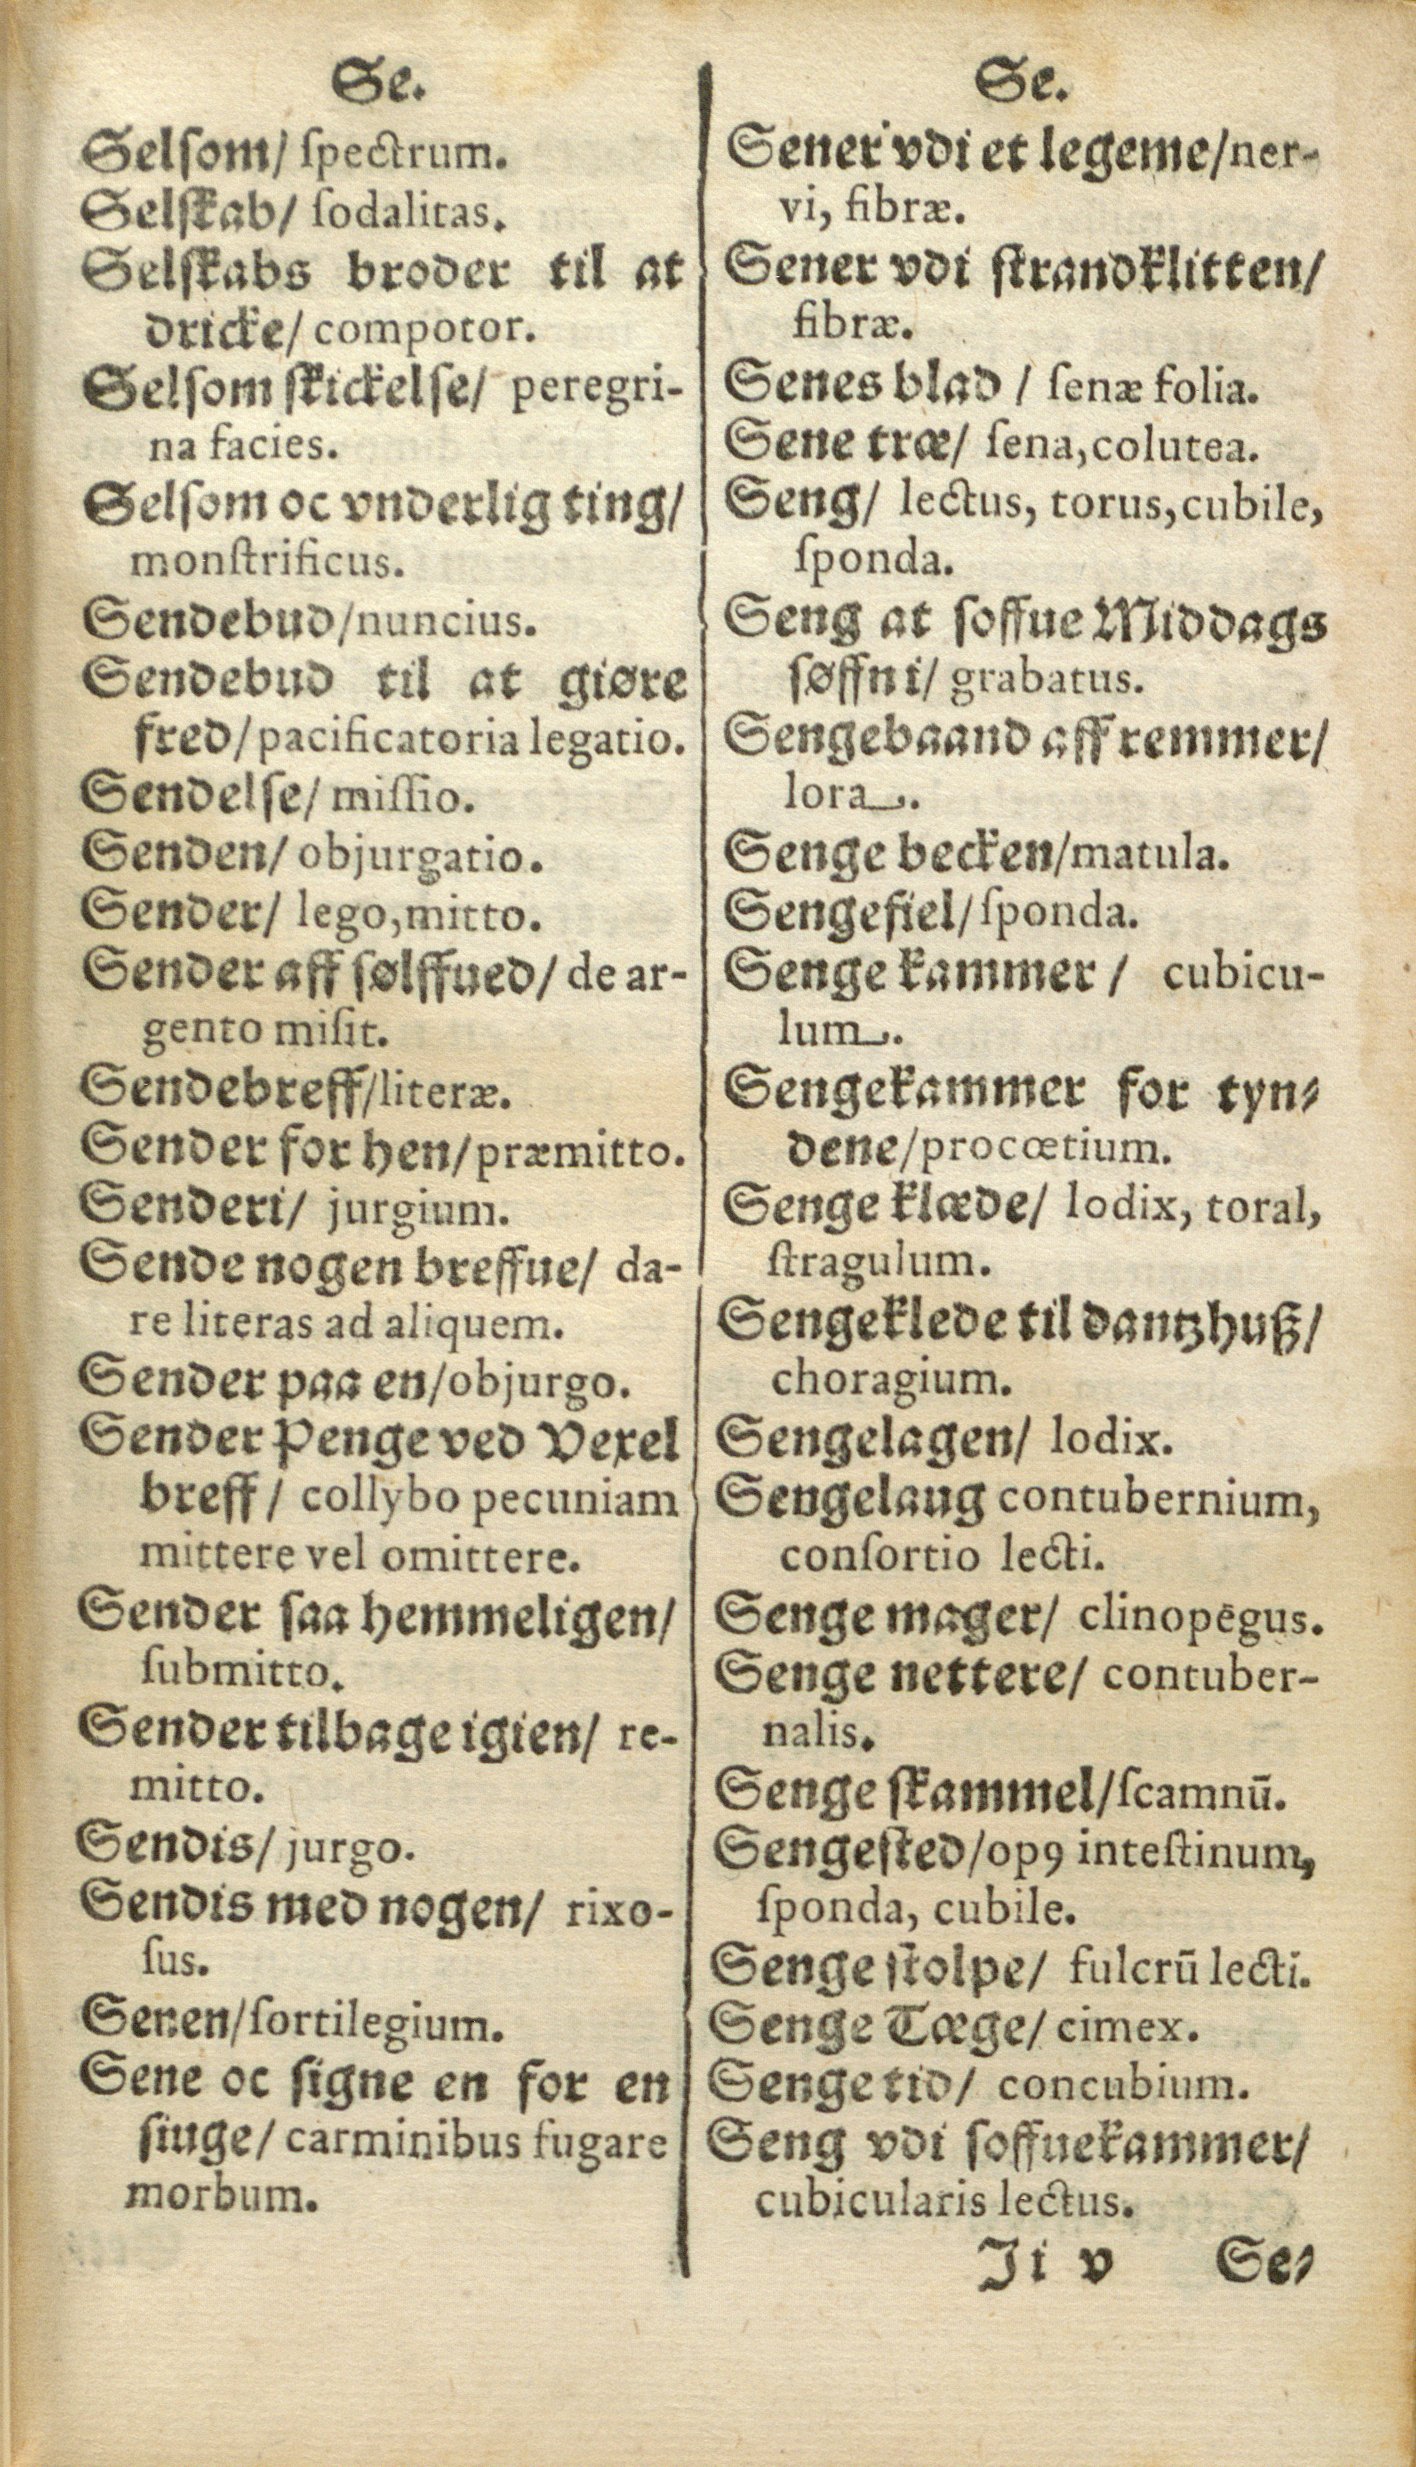 Se.
Selſom/ ſpectrum.
Selſkab/ ſodalitas.
Selſkabs broder til at
dricke/ compotor.
Selſom ſkickelſe/ peregri-
na facies.
Selſom oc vnderlig ting/
monſtrificus.
Sendebud/nuncius.
Sendebud til at giøre
fred/pacificatoria legatio.
Sendelſe/ miſſio.
Senden/ objurgatio.
Sender/ lego,mitto.
Sender aff ſølffued/ de ar-
gento miſit.
Sendebreff/literæ.
Sender for hen/præmitto.
Senderi/ jurgium.
Sende nogen breffue/ da-
re literas ad aliquem.
Sender paa en/objurgo.
Sender Penge ved Vexel
breff/ collybo pecuniam
mittere vel omittere.
Sender ſaa hemmeligen/
ſubmitto.
Sender tilbage igien/ re-
mitto.
Sendis/ jurgo.
Sendis med nogen/ rixo-
ſus.
Senen/ſortilegium.
Sene oc ſigne en for en
ſiuge/ carminibus fugare
morbum.
Se.
Sener vdi et legeme/ner-
vi, fibræ.
Sener vdi ſtrandklitten/
fibræ.
Senes blad / ſenæ folia.
Sene træ/ ſena,colutea.
Seng/ lectus, torus,cubile,
ſponda.
Seng at ſoffue Middags
ſøffn i/ grabatus.
Sengebaand aff remmer/
lora.
Senge becken/matula.
Sengefiel/ſponda.
Senge kammer / cubicu-
lum.
Sengekammer for tyn-
dene/procœtium.
Senge klæde/ lodix, toral,
ſtragulum.
Sengeklede til dantzhuß/
choragium.
Sengelagen/ lodix.
Sengelaug contubernium,
conſortio lecti.
Senge mager/ clinopēgus.
Senge nettere/ contuber-
nalis.
Senge ſkammel/ſcamnū.
Sengeſted/opꝰ inteſtinum,
ſponda, cubile.
Senge ſtolpe/ fulcrū lecti.
Senge Tæge/ cimex.
Senge tid/ concubium.
Seng vdi ſoffuekammer/
cubicularis lectus.
Ji v Se-